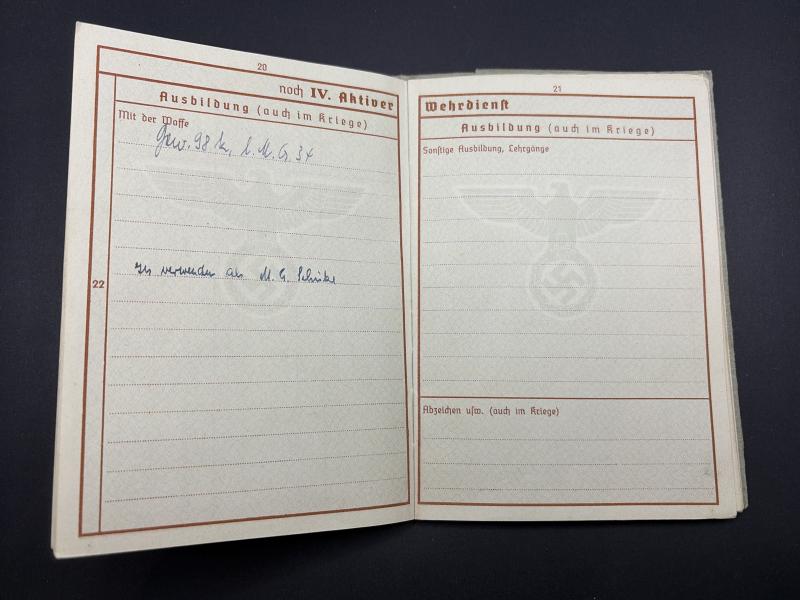 20
noch IV. Aktiver
Ausbildung (auch im Kriege)
Mit der Waffe
Gew. 98 k, l. M. G. 34
zu verwenden als M. G. Schütze
22
21
Wehrdienst
Ausbildung (auch im Kriege)
Sonstige Ausbildung, Lehrgänge
Abzeichen usw. (auch im Kriege)